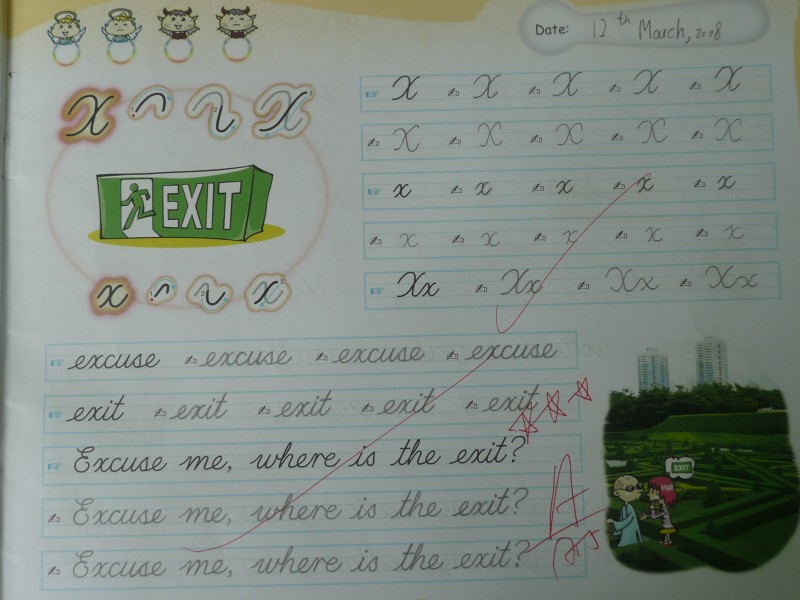 Date: 12th March, 2008
X
EXIT
x
X X X X X
X X X X X
x x x x x
x x x x x
Xx Xx Xx Xx
excuse excuse excuse excuse
exit exit exit exit exit
Excuse me, where is the exit?
Excuse me, where is the exit?
Excuse me, where is the exit?
A
EXIT